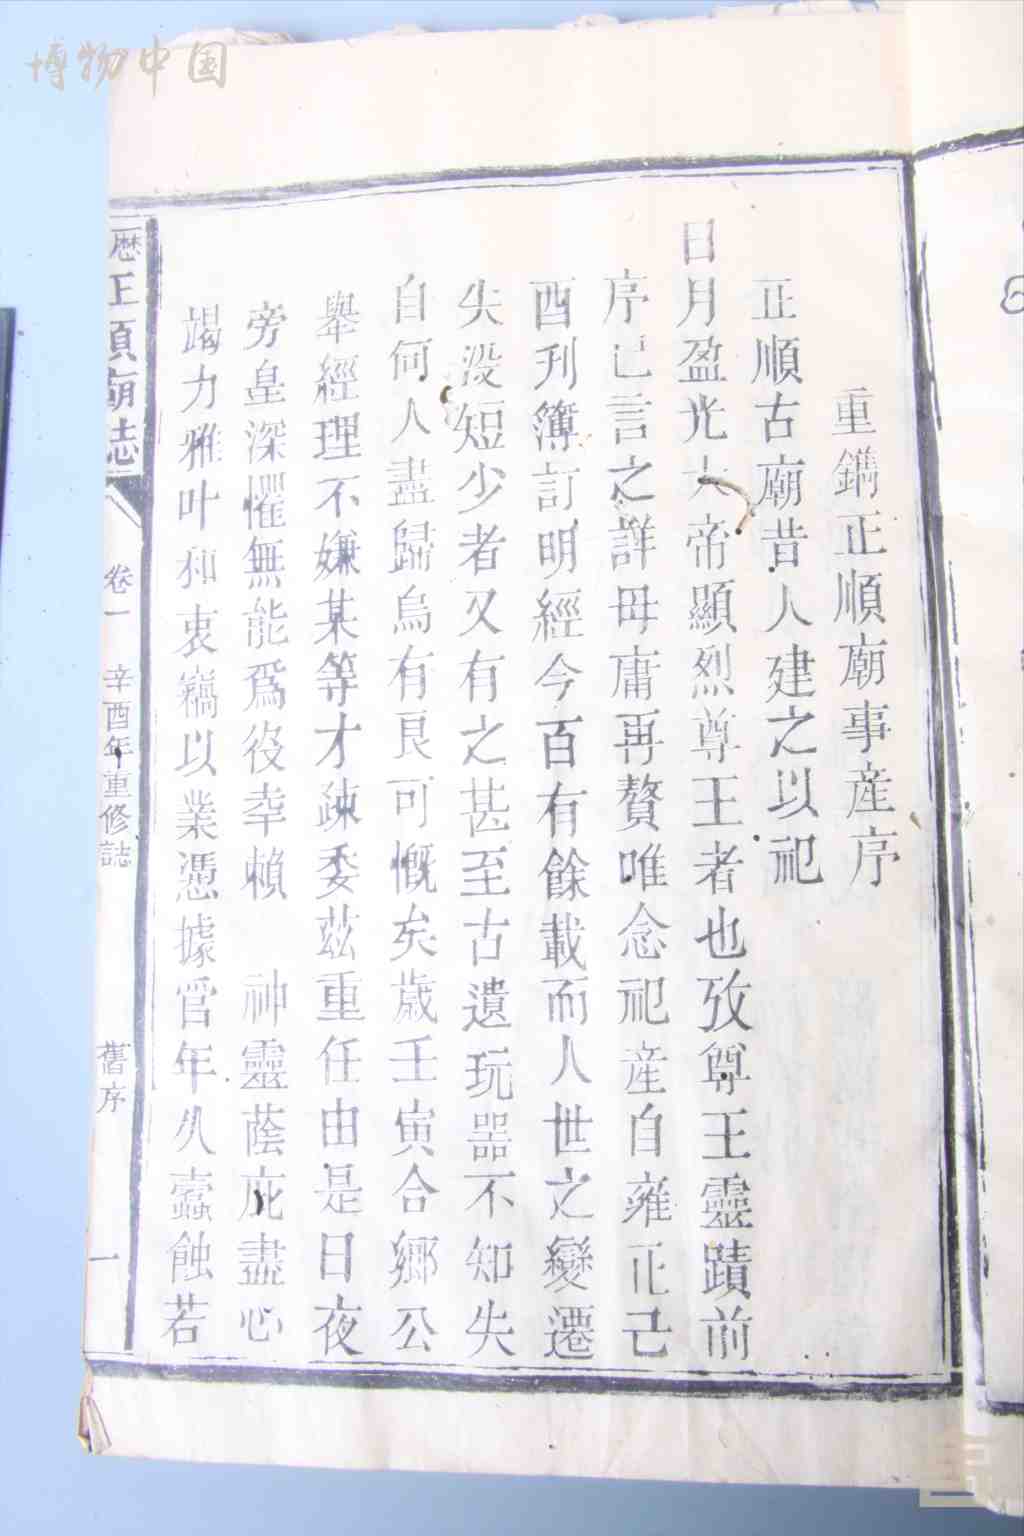 博物中国
重鐫正順廟事産序
正順古廟昔人建之以祀
日月盈光大帝顯烈尊王者也攷尊王靈蹟前
序已言之詳毋庸再贅唯念祀産自雍正己
酉刋簿訂明經今百有餘載而人世之變遷
失没短少者又有之甚至古遺玩器不知失
自何人盡歸烏有良可慨矣歲壬寅合鄉公
舉經理不嫌某等才疎委兹重任由是日夜
旁皇深懼無能爲役幸賴 神靈蔭庇盡心
竭力雅叶和衷竊以業憑據官年久蠹蝕若
正順廟誌 卷一 辛酉年重修誌 舊序 一